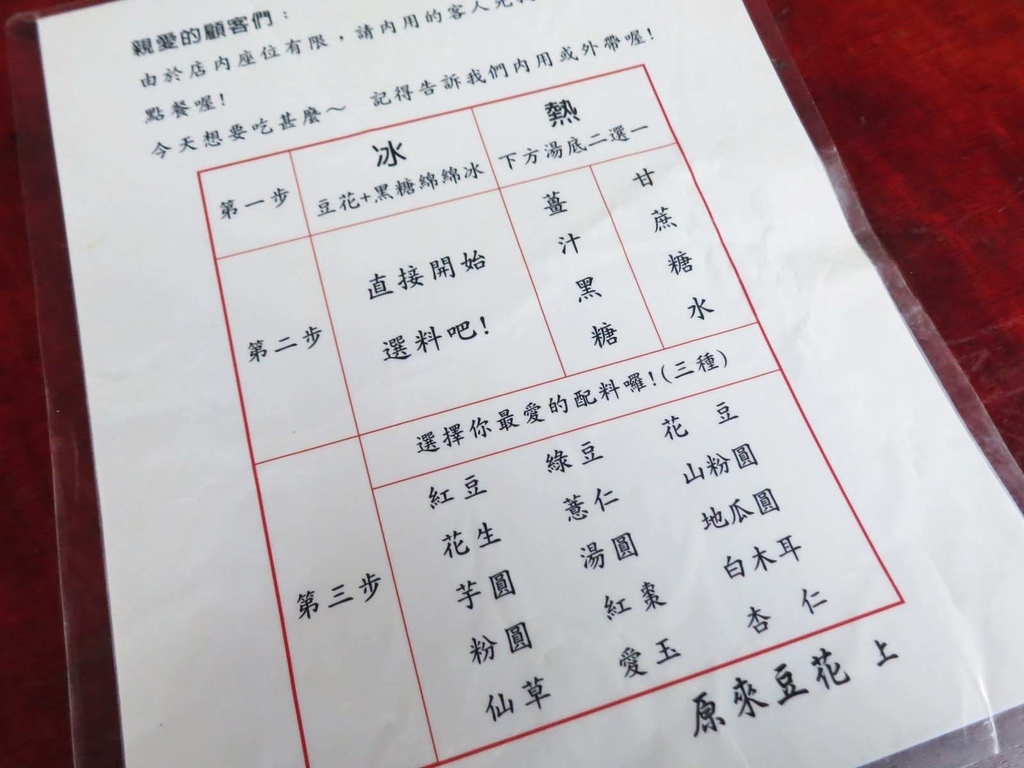 親愛的顧客們：
由於店內座位有限，請內用的客人先
點餐喔！
今天想要吃甚麼～ 記得告訴我們內用或外帶喔！
第一步
冰
豆花+黑糖綿綿冰
熱
下方湯底二選一
第二步
直接開始
選料吧！
薑汁黑糖
甘蔗糖水
第三步
選擇你最愛的配料囉！(三種)
紅豆 綠豆 花豆
花生 薏仁 山粉圓
芋圓 湯圓 地瓜圓
粉圓 紅棗 白木耳
仙草 愛玉 杏仁
原來豆花 上